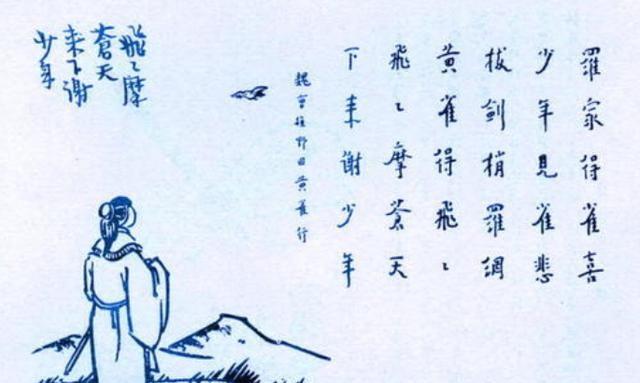 羅家得雀喜
少年見雀悲
拔劍捎羅網
黄雀得飛〻
飛〻摩蒼天
下来謝少年
魏曹植野田黄雀行
飛〻摩
蒼天
来下謝
少年